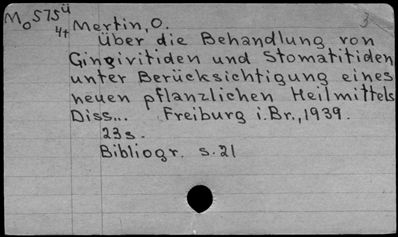 Mo575ü Mertin, O. 3
4t
Über die Behandlung von
Gingivitiden und Stomatitiden
unter Berücksichtigung eines
neuen pflanzlichen Heilmittels
Diss... Freiburg i.Br., 1939.
23s.
Bibliogr. s.21